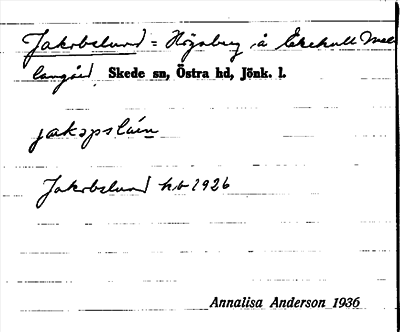 Jakobslund = Högaberg å Ekekull Mel-
langård, Skede sn, Östra hd, Jönk. l.
jakəpslún
Jakobslund hb 1926
Annalisa Anderson 1936